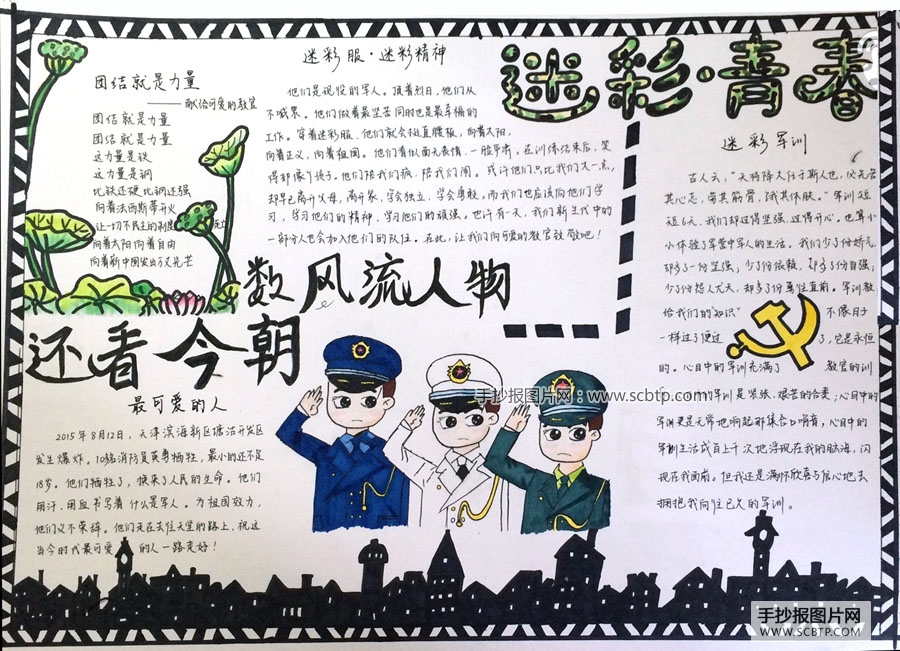 迷彩·青春
团结就是力量
——献给可爱的教官
团结就是力量
团结就是力量
这力量是铁
这力量是钢
比铁还硬比钢还强
向着法西斯蒂开火
让一切不民主的制度死亡
向着太阳向着自由
向着新中国发出万丈光芒
迷彩服·迷彩精神
他们是现役的军人。顶着烈日,他们从
不喊累。他们做着最坚苦同时也是最幸福的
工作。穿着迷彩服,他们就会挺直腰板,向着太阳,
向着正义,向着祖国。他们看似面无表情,一脸严肃。在训练结束后,笑
得却像个孩子。他们陪我们疯,陪我们闹。或许他们只比我们大一点,
却早已离开父母,离开家,学会独立,学会勇敢。而我们也应该向他们学
习,学习他们的精神,学习他们的顽强。也许有一天,我们新生代中的
一部分人也会加入他们的队伍。在此,让我们向可爱的教官致敬吧!
数风流人物
还看今朝
最可爱的人
2015年8月12日,天津滨海新区塘沽开发区
发生爆炸。10名消防员英勇牺牲,最小的还不足
18岁。他们牺牲了,换来了人民的生命。他们
用汗,用血书写着什么是军人。为祖国效力,
他们义不荣辞。他们走在去往天堂的路上,祝这
当今时代最可爱的人一路走好!
迷彩军训
古人云,“天将降大任于斯人也,必先苦
其心志,劳其筋骨,饿其体肤。”军训短
短6天,我们却过得坚强,过得开心,也算小
小体验了军营中军人的生活。我们少了份娇气,
却多了一份坚强;少了份依赖,却多了份自强;
少了份怨人尤天,却多了份勇往直前。军训教
给我们的“知识”不像日子
一样过了便过了,它是永恒
的。心目中的军训充满了教官的训
的军训是紧张、艰苦的合奏;心目中的
军训更是无常地响起那集合口哨音,心目中的
军训生活成百上千次地浮现在我的脑海,闪
现在我面前。但我还是满怀欣喜与信心地去
拥抱我向往已久的军训。
手抄报图片网:www.scbtp.com
手抄报图片网
WWW.SCBTP.COM